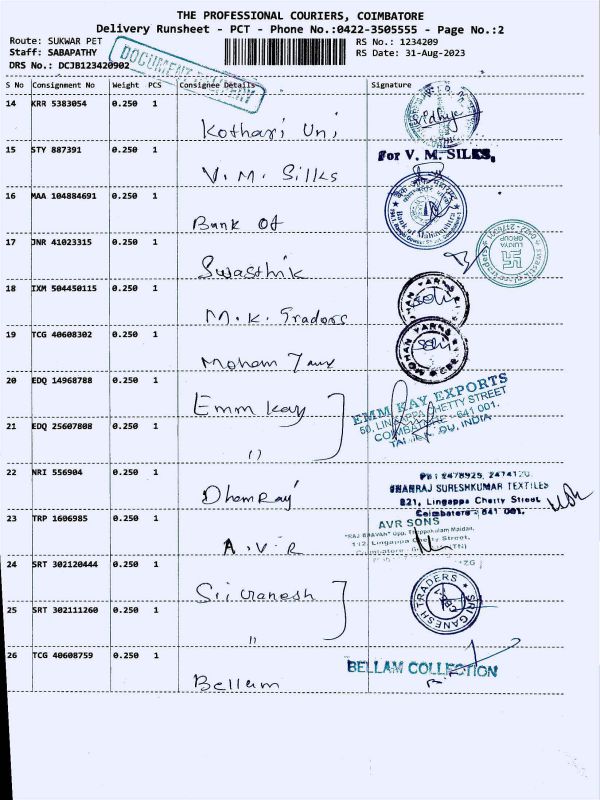 THE PROFESSIONAL COURIERS, COIMBATORE
Delivery Runsheet - PCT - Phone No.:0422-3505555 - Page No.:2
Route: SUKWAR PET
RS No.: 1234209
Staff: SABAPATHY
RS Date: 31-Aug-2023
DRS No.: DCJB123420902
DOCUMENT DELIVERY
S No Consignment No Weight PCS Consignee Details Signature
14 KRR 5383054 0.250 1
Kothari Uni
15 STY 887391 0.250 1
For V. M. SILKS,
V. M. Silks
16 MAA 104884691 0.250 1
Bank of Maharashtra
Bank Of
17 JNR 41023315 0.250 1
LUNIYA GROUP
Swasthik
18 IXM 504450115 0.250 1
M. K. Tradors
19 TCG 40608302 0.250 1
MOHAN YARNS
Moham
20 EDQ 14968788 0.250 1
Emm Kay
EMM KAY EXPORTS
50, LINGAPPA CHETTY STREET
COIMBATORE - 641 001.
INDIA
21 EDQ 25607808 0.250 1
11
22 NRI 556904 0.250 1
DHANRAJ SURESHKUMAR TEXTILES
821, Lingappa Chetty Street
Coimbatore - 641 001.
Dhamraj
23 TRP 1606985 0.250 1
AVR SONS
A. V. R
24 SRT 302120444 0.250 1
Sri Ganesh
SRI GANESH TRADERS
25 SRT 302111260 0.250 1
11
26 TCG 40608759 0.250 1
BELLAM COLLECTION
Bellam